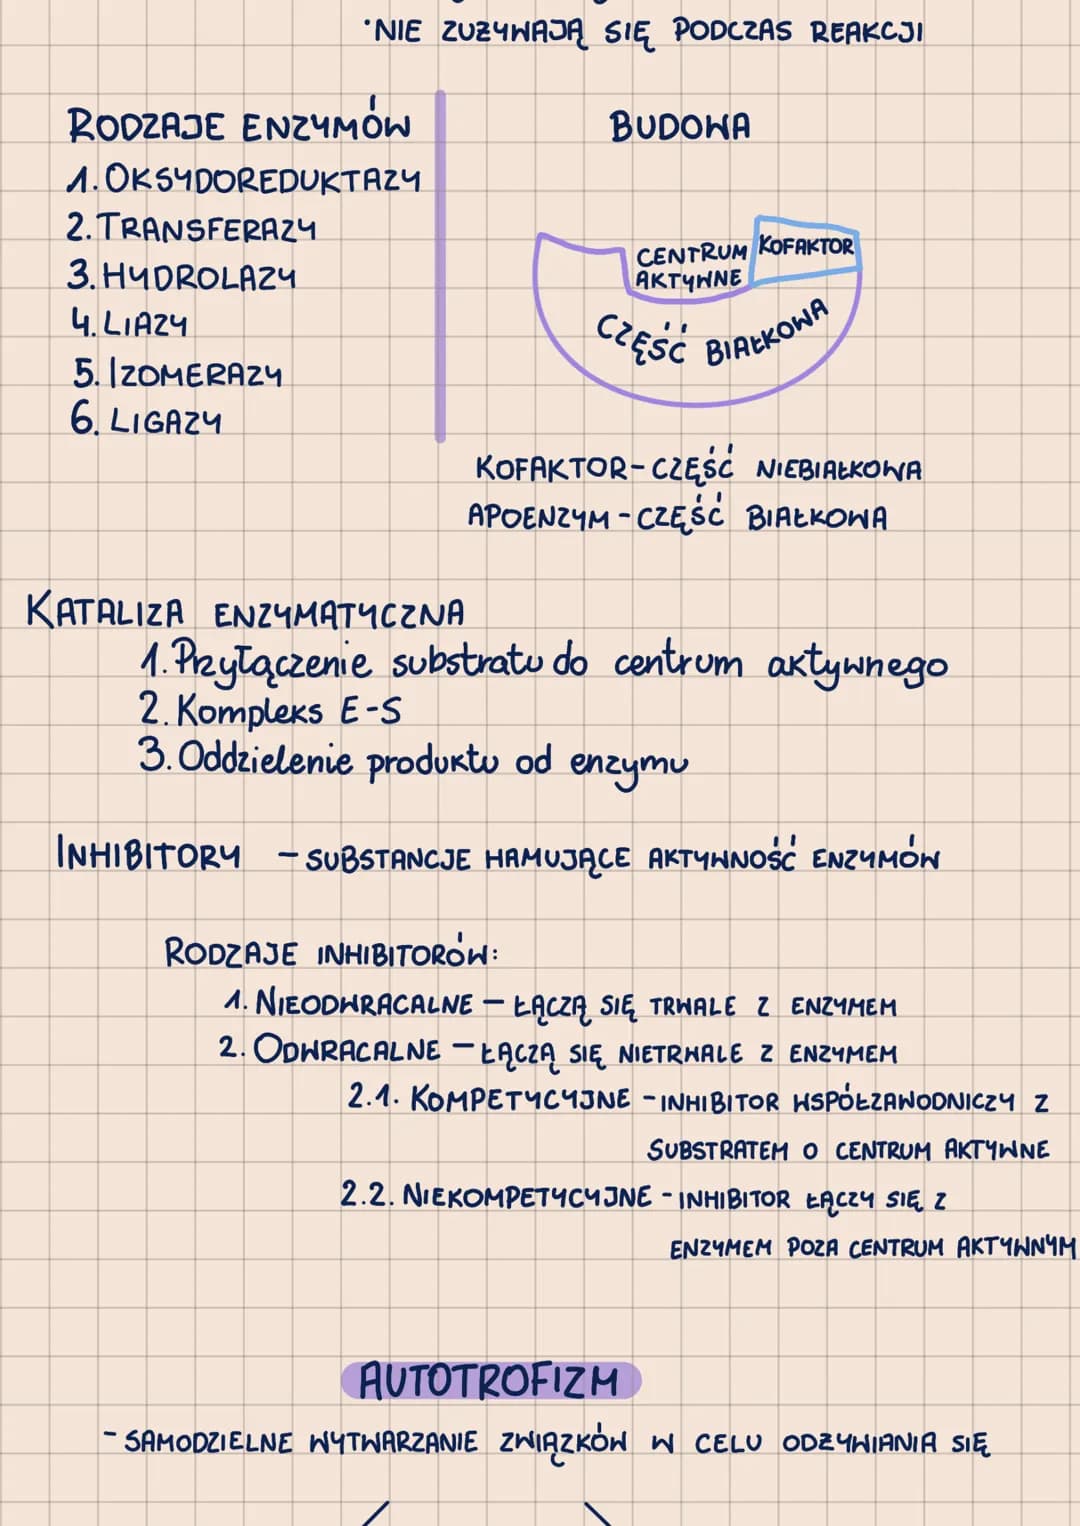 •NIE ZUŻYWAJĄ SIĘ PODCZAS REAKCJI
RODZAJE ENZYMÓW
1. OKSYDOREDUKTAZY
2. TRANSFERAZY
3. HYDROLAZY
4. LIAZY
5. IZOMERAZY
6. LIGAZY
BUDOWA
CENTRUM
AKTYWNE
KOFAKTOR
CZĘŚĆ BIAŁKOWA
KOFAKTOR - CZĘŚĆ NIEBIAŁKOWA
APOENZYM - CZĘŚĆ BIAŁKOWA
KATALIZA ENZYMATYCZNA
1. Przyłączenie substratu do centrum aktywnego
2. Kompleks E-S
3. Oddzielenie produktu od enzymu
INHIBITORY - SUBSTANCJE HAMUJĄCE AKTYWNOŚĆ ENZYMÓW
RODZAJE INHIBITORÓW:
1. NIEODWRACALNE - ŁĄCZĄ SIĘ TRWALE Z ENZYMEM
2. ODWRACALNE - ŁĄCZĄ SIĘ NIETRWALE Z ENZYMEM
2.1. KOMPETYCYJNE - INHIBITOR WSPÓŁZAWODNICZY Z
SUBSTRATEM O CENTRUM AKTYWNE
2.2. NIEKOMPETYCYJNE - INHIBITOR ŁĄCZY SIĘ Z
ENZYMEM POZA CENTRUM AKTYWNYM
AUTOTROFIZM
- SAMODZIELNE WYTWARZANIE ZWIĄZKÓW W CELU ODŻYWIANIA SIĘ